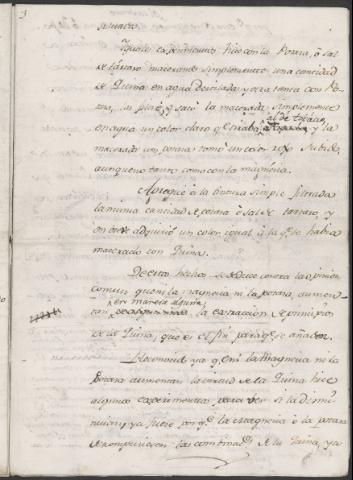 3
Iguales experimentos hice con la Potasa, ò sal
de tártaro macerando simplemente una cantidad
de Quina en agua destilada y otra tanta con Po-
tasa, las filtré, y sacó la macerada simplemente
en agua un color claro qe. tiraba al de topacio, y la
macerada con potasa tomó un color roxo subido,
aunque no tanto como con la magnesia.
Agregué à la tintura simple filtrada
la misma cantidad de potasa ò sal de tartaro, y
en breve adquirió un color igual à la qe. se habia
macerado con Quina.
De estos hechos se deduce contra la opinion
comun que ni la magnesia ni la potasa, aumen-
tan, de manera alguna, la extraccion de principios
de la Quina, que es el fin para qe. se añaden.
Reconocido ya qe. ni la Magnesia ni la
Potasa aumentan la virtud de la Quina hice
algunos experimentos para ver si la dismi-
nuien; ya fuese por qe. la magnesia ò la potasa
descompusiesen las combinacs. de la Quina, ya